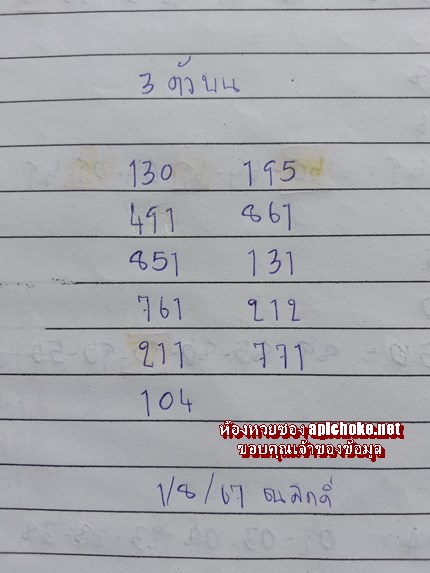 3 ตัวบน
130 195
491 861
851 131
761 212
211 771
104
ห้องหวยซอง apichoke.net
ขอบคุณเจ้าของข้อมูล
1/8/67